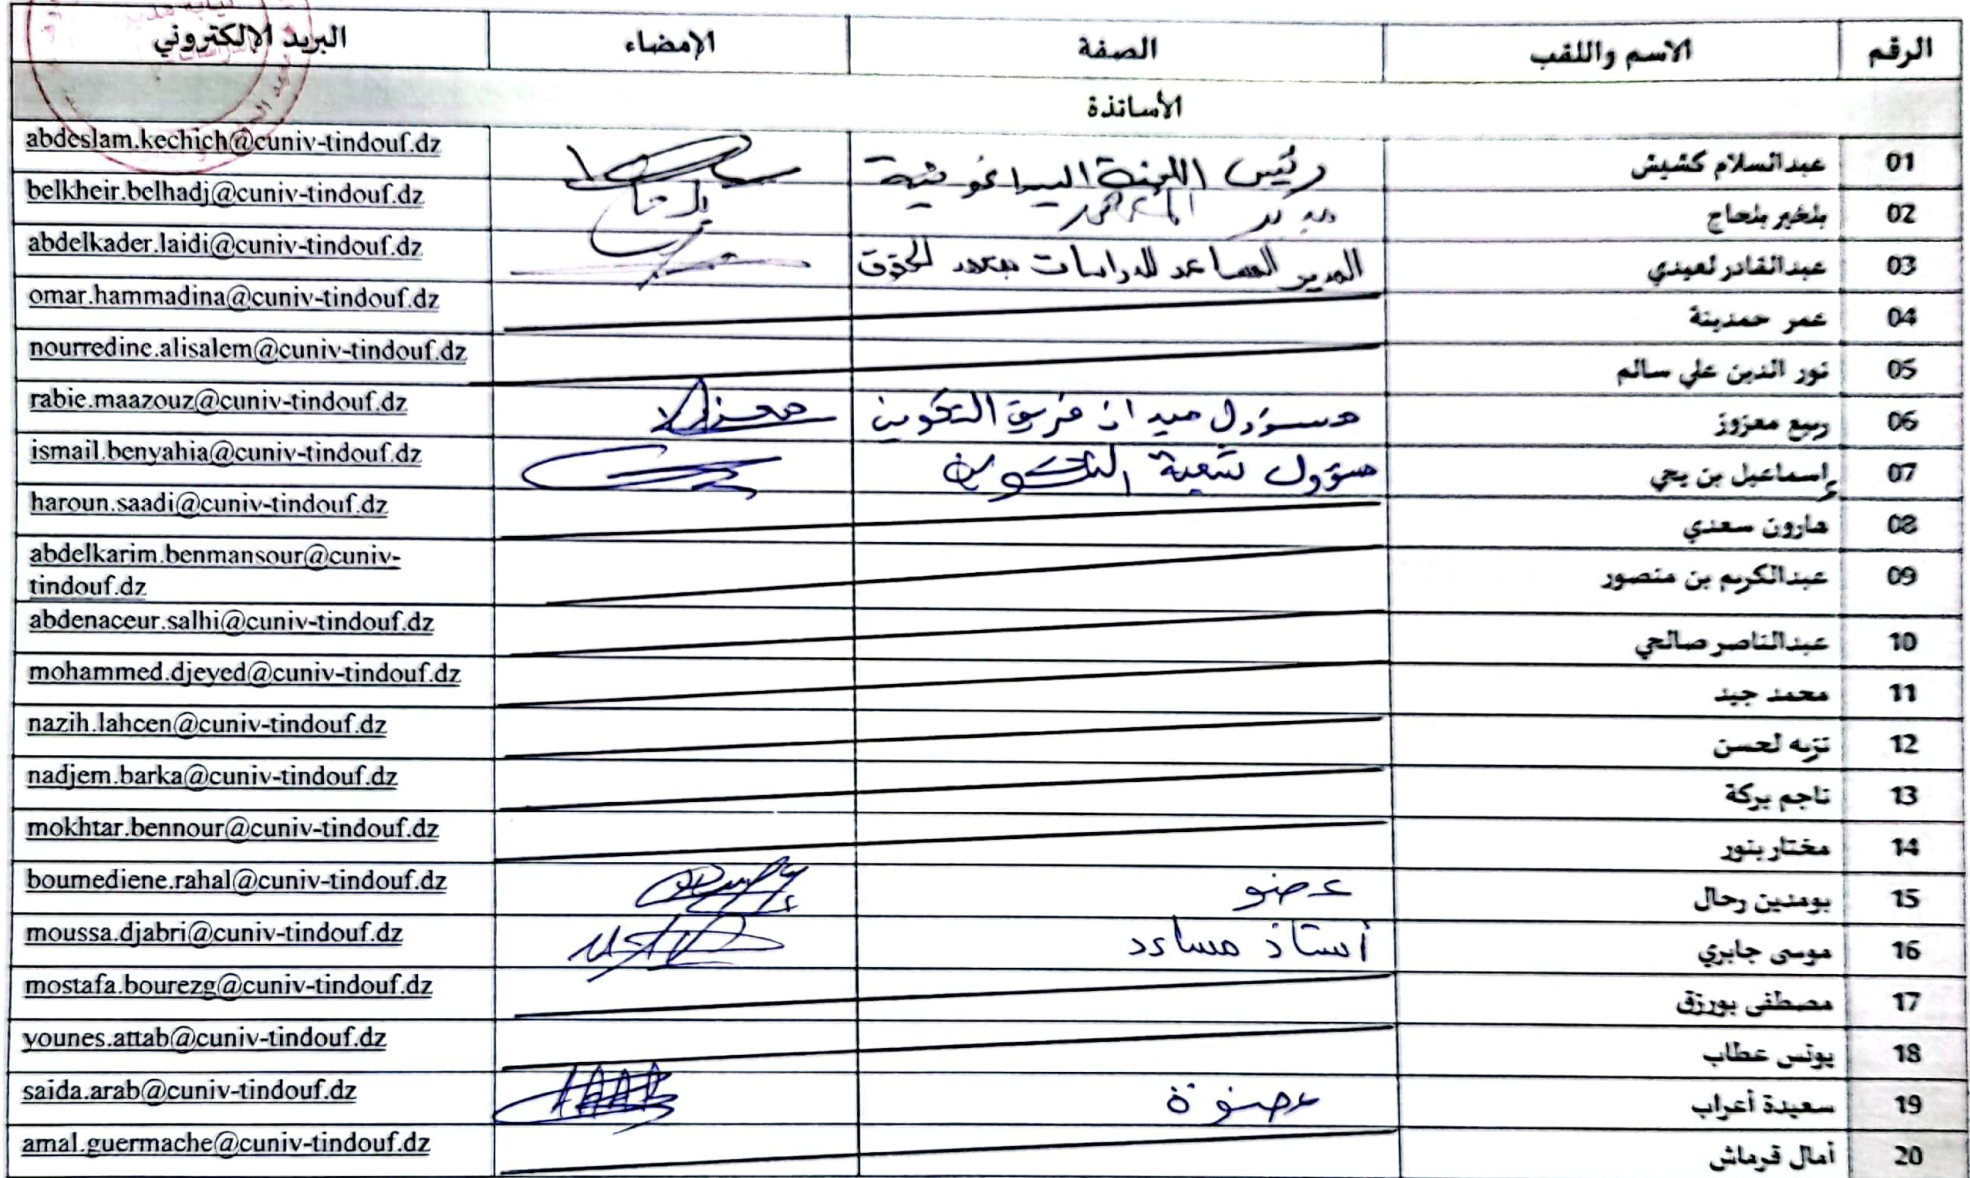 الرقم الاسم واللقب الصفة الإمضاء البريد الالكتروني
الأساتذة
01 عبدالسلام كشيش رئيس اللجنة البيداغوجية abdeslam.kechich@cuniv-tindouf.dz
02 بلخير بلحاج مدير belkheir.belhadj@cuniv-tindouf.dz
03 عبدالقادر لعيدي المدير المساعد للدراسات بمعهد الحقوق abdelkader.laidi@cuniv-tindouf.dz
04 عمر حمدينة omar.hammadina@cuniv-tindouf.dz
05 نور الدين علي سالم nourredine.alisalem@cuniv-tindouf.dz
06 ربيع معزوز مسؤول ميدان فريق التكوين rabie.maazouz@cuniv-tindouf.dz
07 إسماعيل بن يحي مسؤول شعبة التكوين ismail.benyahia@cuniv-tindouf.dz
08 هارون سعدي haroun.saadi@cuniv-tindouf.dz
09 عبدالكريم بن منصور abdelkarim.benmansour@cuniv-
tindouf.dz
10 عبدالناصر صالحي abdenaceur.salhi@cuniv-tindouf.dz
11 محمد جيد mohammed.djeyed@cuniv-tindouf.dz
12 نزيه لحسن nazih.lahcen@cuniv-tindouf.dz
13 ناجم بركة nadjem.barka@cuniv-tindouf.dz
14 مختار بنور mokhtar.bennour@cuniv-tindouf.dz
15 بومدين رحال عضو boumediene.rahal@cuniv-tindouf.dz
16 موسى جابري أستاذ مساعد moussa.djabri@cuniv-tindouf.dz
17 مصطفى بورزق mostafa.bourezg@cuniv-tindouf.dz
18 يونس عطاب younes.attab@cuniv-tindouf.dz
19 سعيدة أعراب عضوة saida.arab@cuniv-tindouf.dz
20 أمال قرماش amal.guermache@cuniv-tindouf.dz